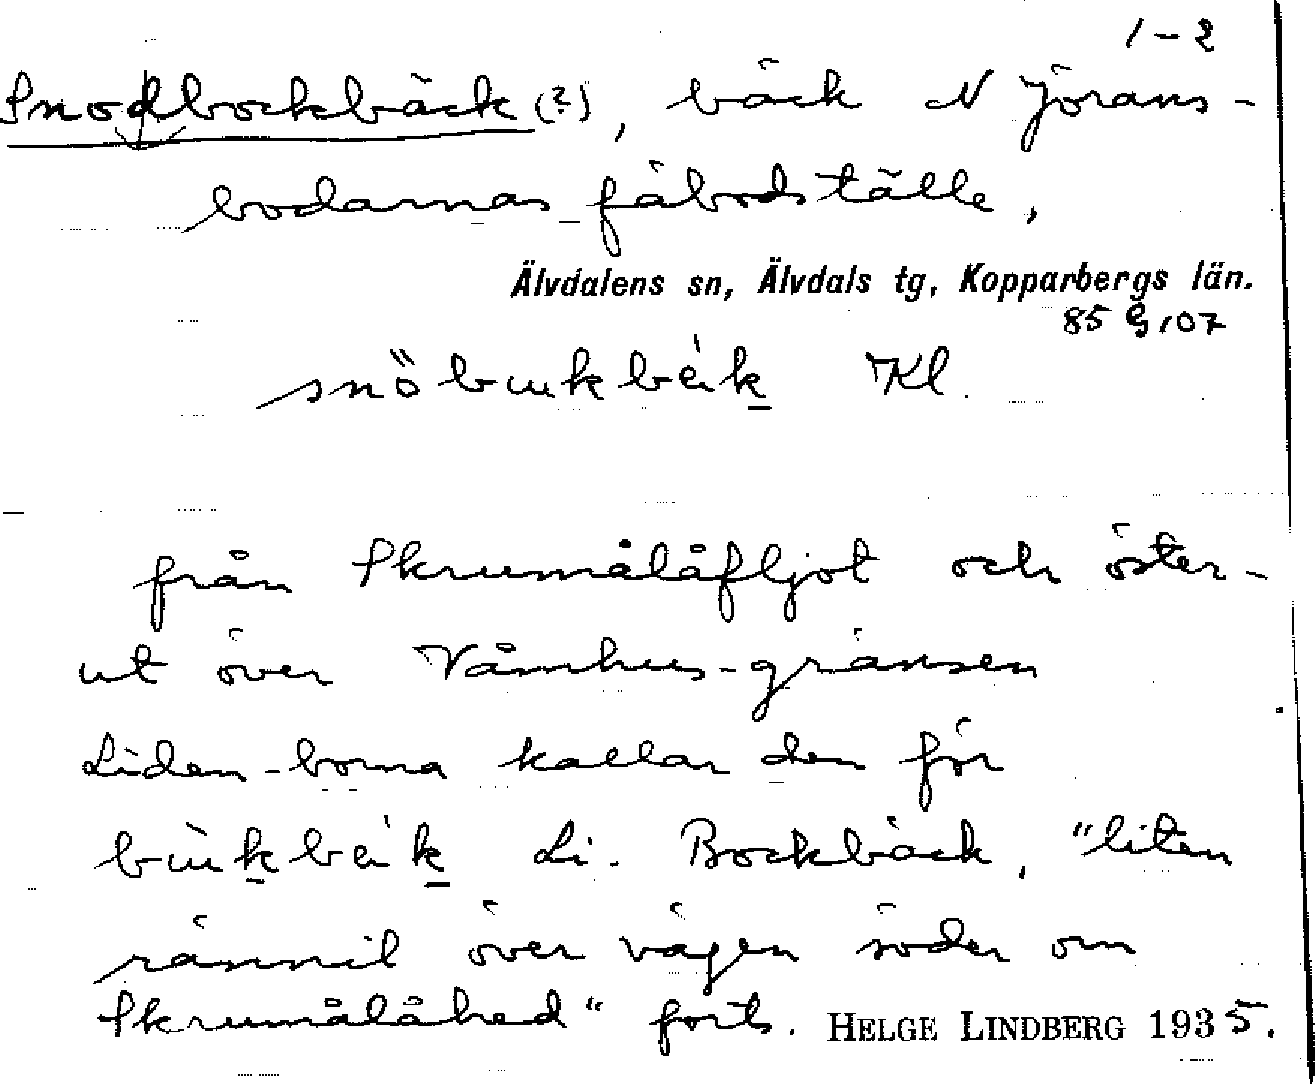 1-2
Snodbockbäck (?), bäck N Jörans-
bodarnas fäbodställe,
Älvdalens sn, Älvdals tg, Kopparbergs län.
85 G, 07
snöbuukbèik Kl.
från Skrumålåfljot och öster-
ut över Våmhus-gränsen
Liden-borna kallar den för
bùukbèik Li. Bockbäck, "liten
rännil över vägen söder om
Skrumålåhed" forts. HELGE LINDBERG 1935.